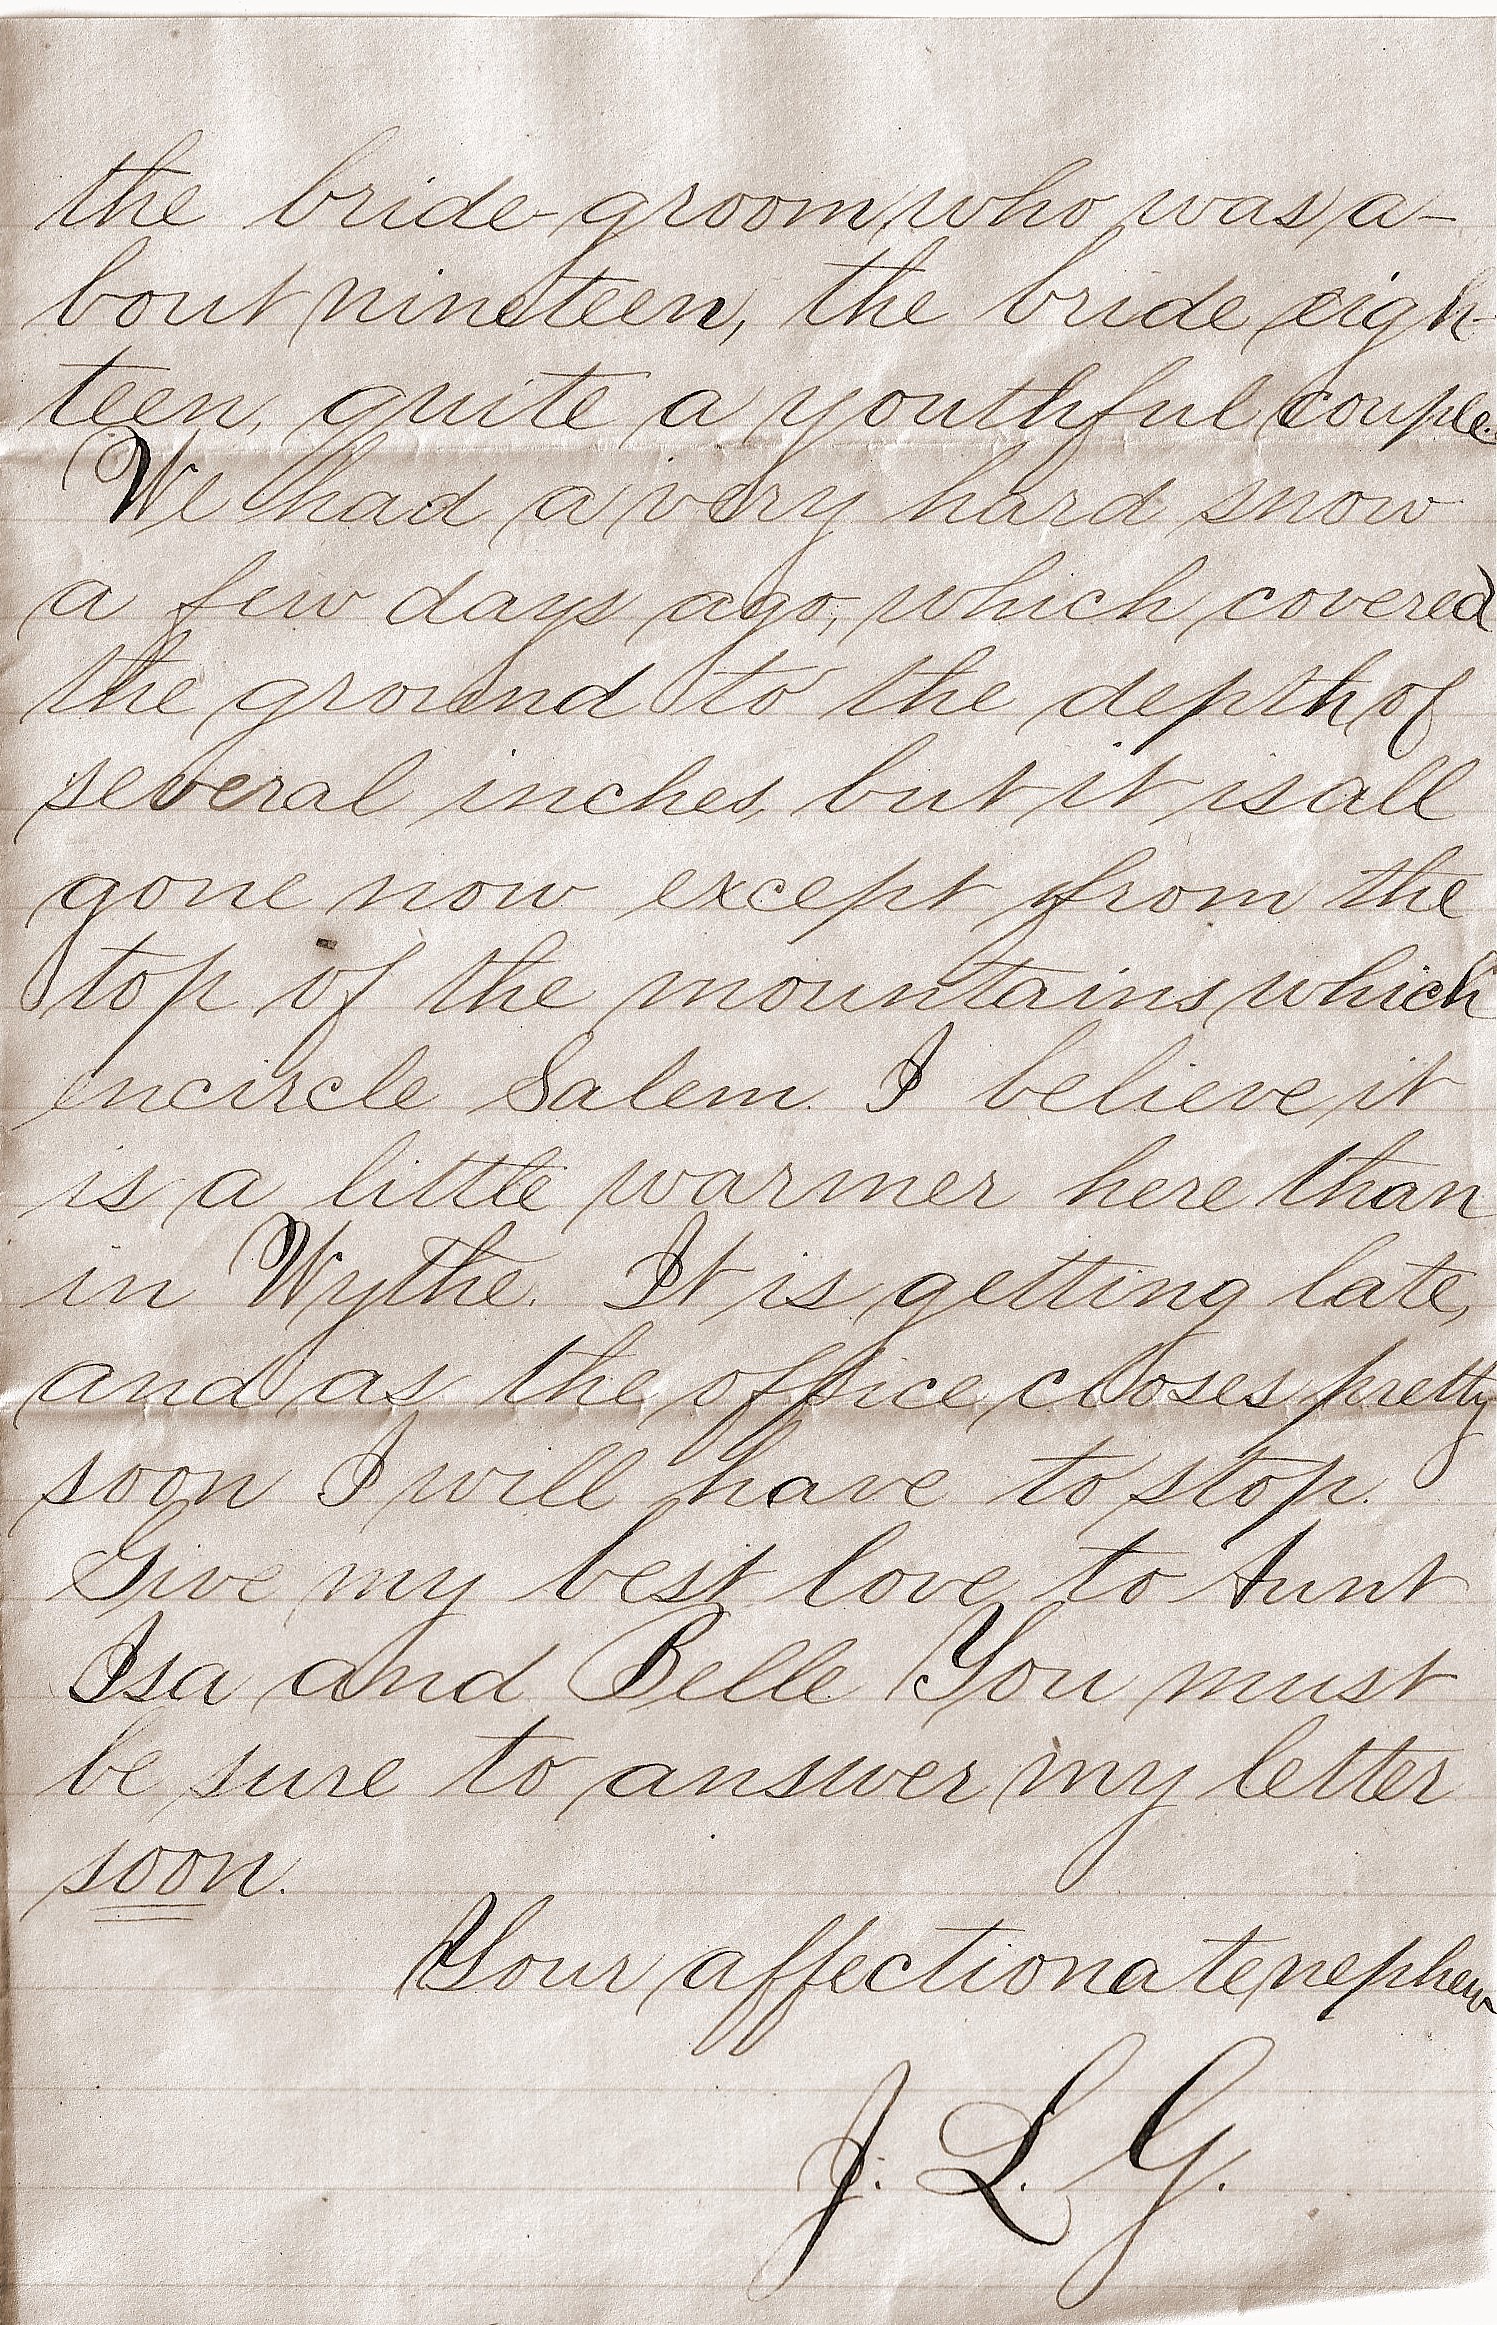 the bride groom, who was a-
bout nineteen, the bride eigh-
teen, quite a youthful couple.
We had a very hard snow
a few days ago, which covered
the ground to the depth of
several inches, but it is all
gone now except from the
top of the mountains which
encircle Salem. I believe it
is a little warmer here than
in Wythe. It is getting late,
and as the office closes pretty
soon I will have to stop.
Give my best love to Aunt
Isa and Belle You must
be sure to answer my letter
soon.
Your affectionate nephew
J. L. G.